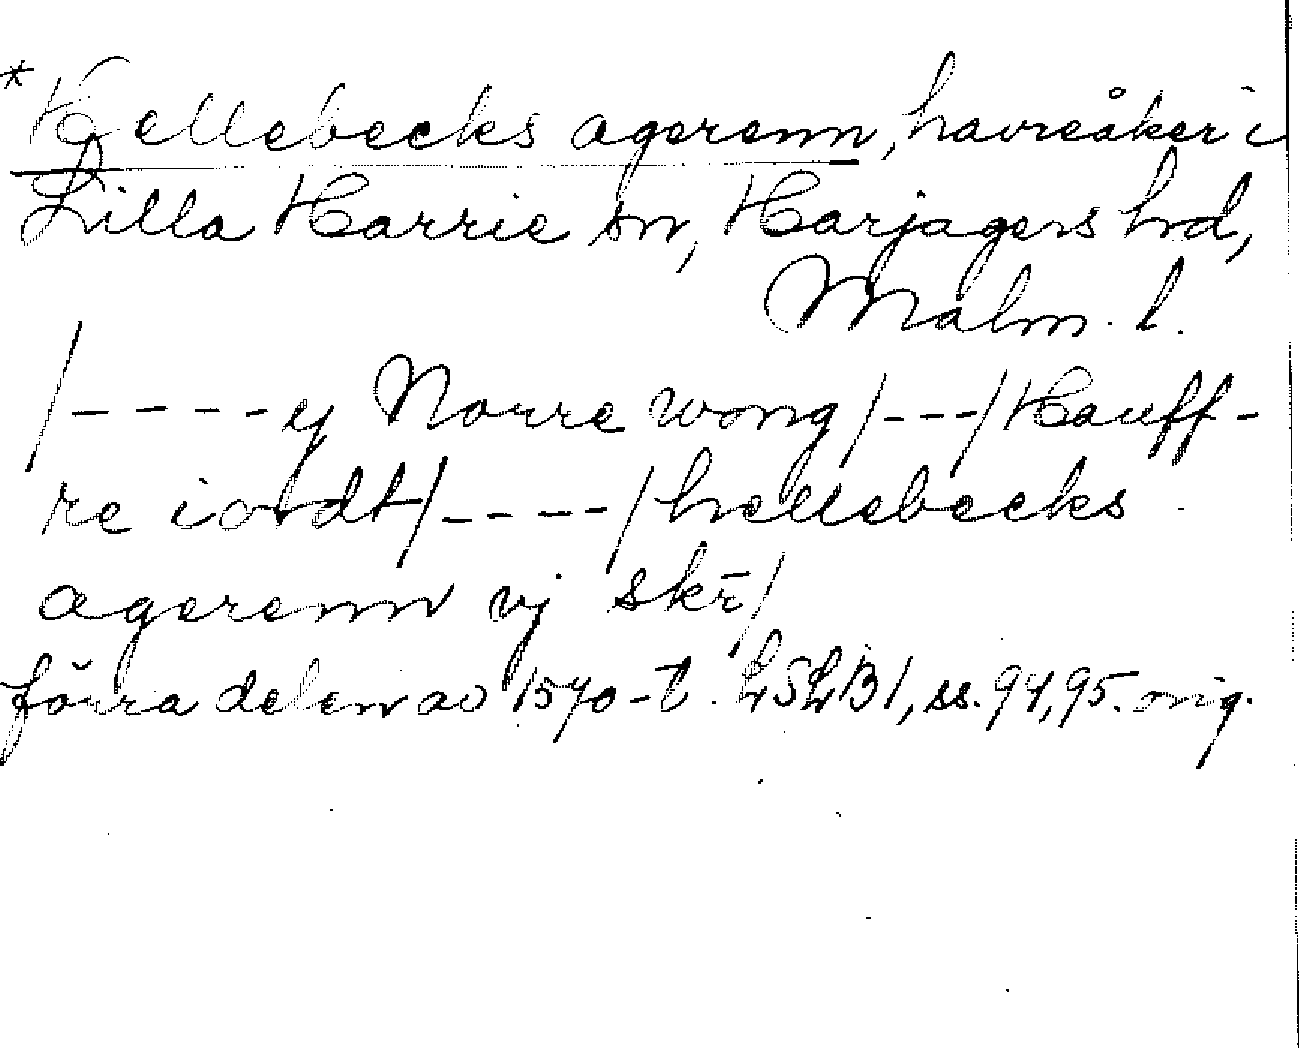 * Hellebecks agerenn, havreåker i
Lilla Harrie sn, Harjagers hd,
Malm. l.
/----ij Norre wong/---/Hauff-
re iordt/----/hellebecks
agerenn vj skr̄/
förra delen av 1570-t. LSLB1, ss. 94, 95. orig.